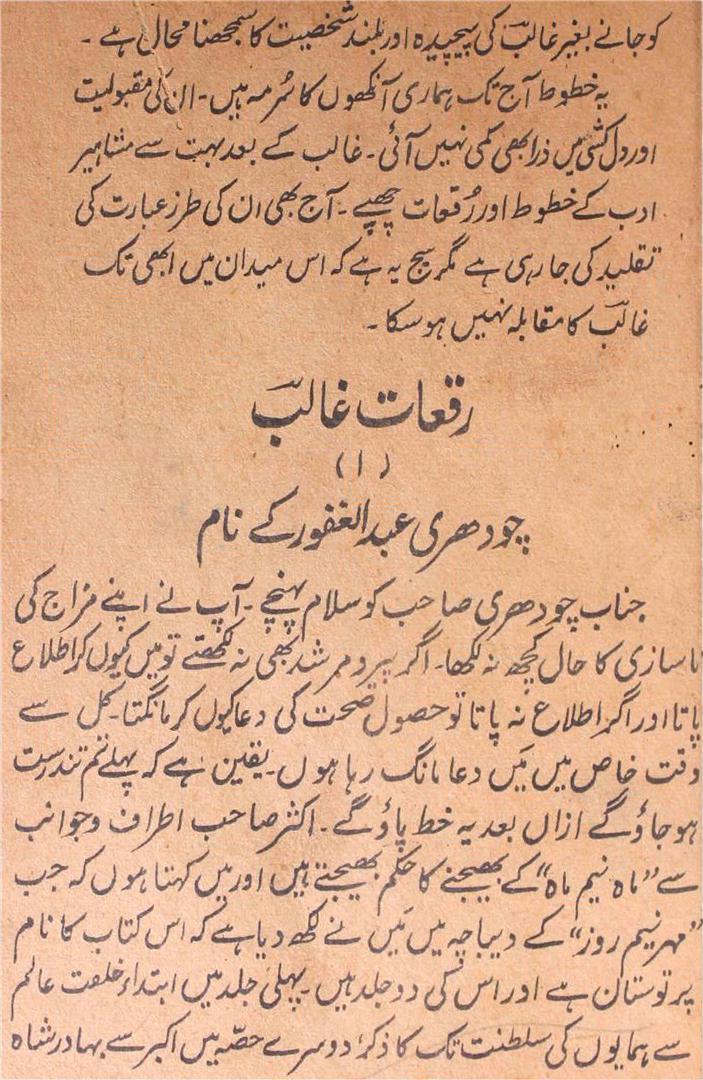 کو جانے بغیر غالبؔ کی پیچیدہ اور بلند شخصیت کا سمجھنا محال ہے ۔
یہ خطوط آج تک ہماری آنکھوں کا سُرمہ ہیں ۔ ان کی مقبولیت
اور دل کشی میں ذرا بھی کمی نہیں آئی ۔ غالب کے بعد بہت سے مشاہیر
ادب کے خطوط اور رُقعات چھپے ۔ آج بھی ان کی طرز عبارت کی
تقلید کی جارہی ہے مگر سچ یہ ہے کہ اس میدان میں ابھی تک
غالبؔ کا مقابلہ نہیں ہوسکا ۔
رقعات غالبؔ
(۱)
چودھری عبدالغفور کے نام
جناب چودھری صاحب کو سلام پہنچے ۔ آپ نے اپنے مزاج کی
ناسازی کا حال کچھ نہ لکھا ۔ اگر پیرومرشد بھی نہ لکھتے تو میں کیوں کر اطلاع
پاتا اور اگر اطلاع نہ پاتا تو حصول صحت کی دعا کیوں کر مانگتا ۔ کل سے
وقت خاص میں مَیں دعا مانگ رہا ہوں ۔ یقین ہے کہ پہلے تم تندرست
ہوجاؤ گے ازاں بعد یہ خط پاؤ گے ۔ اکثر صاحب اطراف وجوانب
سے "ماہ نیم ماہ" کے بھیجنے کا حکم بھیجتے ہیں اور میں کہتا ہوں کہ جب
"مہر نیم روز" کے دیباچہ میں مَیں نے لکھ دیا ہے کہ اس کتاب کا نام
پرتوستان ہے اور اس کی دو جلد ہیں ۔ پہلی جلد میں ابتداء خلقت عالم
سے ہمایوں کی سلطنت تک کا ذکر، دوسرے حصّہ میں اکبر سے بہادر شاہ